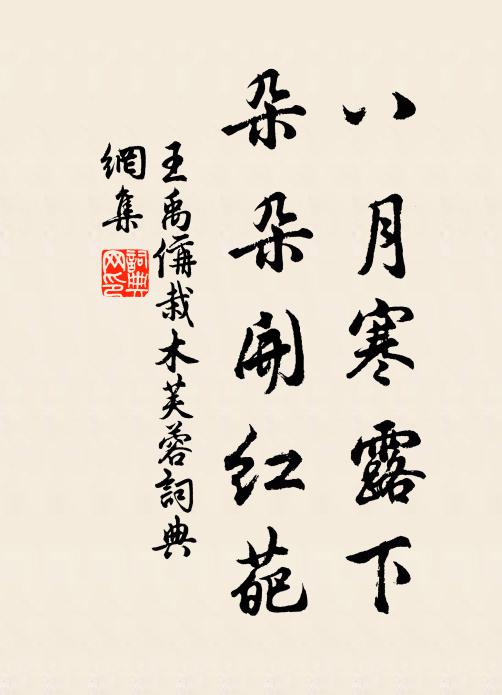 八月寒露下
朵朵開紅葩
王禹偁栽木芙蓉詞典
網集
詞典
网印